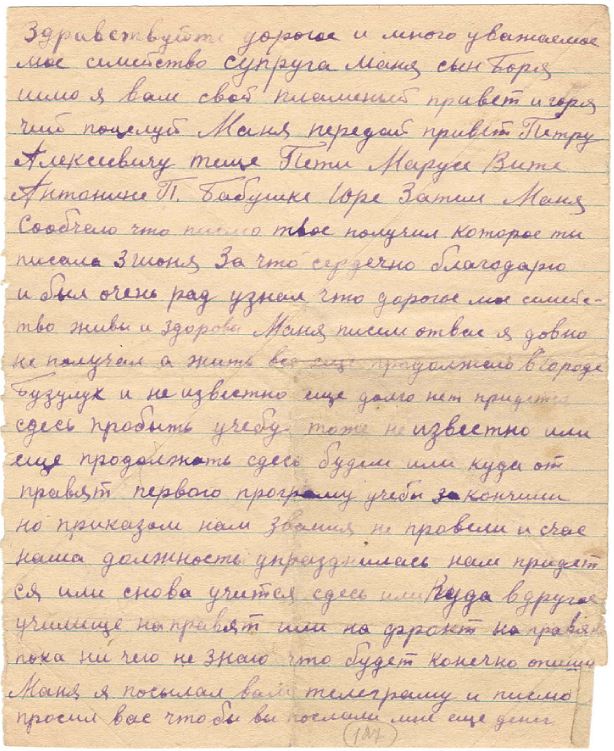 Здравствуйте дорогое и много уважаемое
мое семейство супруга Маня сын Боря
шлю я вам свой пламеный привет и горя
чий поцелуй Маня передай привет Петру
Алексеевичу теще Пети Марусе Вите
Антонине П. Бабушке Юре Затем Маня
Сообчаю что писмо твое получил которое ты
писала 3 июня За что сердечно благодарю
и был очень рад узнал что дорогое мое семейс-
тво живы и здоровы Маня писем от вас я довно
не получал а жить все еще продолжаю в городе
Бузулук и не известно еще долго нет придется
сдесь пробыть учебу тоже не известно или
еще продолжать сдесь будем или куда от
правят первого програму учебы закончили
но приказом нам звания не провели и счас
наша должность упразднилась нам придет
ся или снова учится сдесь или куда в другое
училище направят или на фронт направят
пока ни чего не знаю что будет конечно опишу
Маня я посылал вам телеграму и писмо
просил вас чтобы вы послали мне еще денег